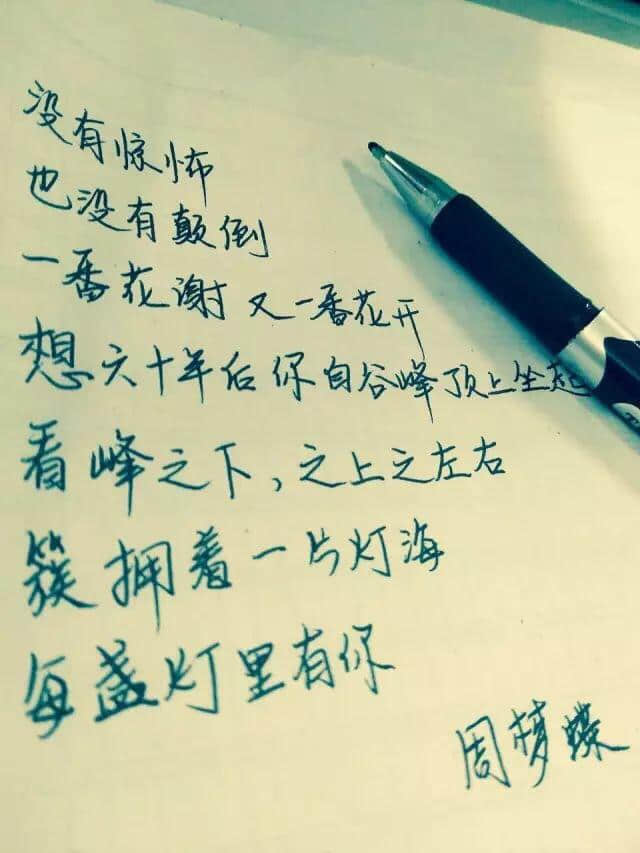 没有惊怖
也没有颠倒
一番花谢又一番花开
想六十年后你自谷峰顶上坐起
看峰之下，之上之左右
簇拥着一片灯海
每盏灯里有你
周梦蝶